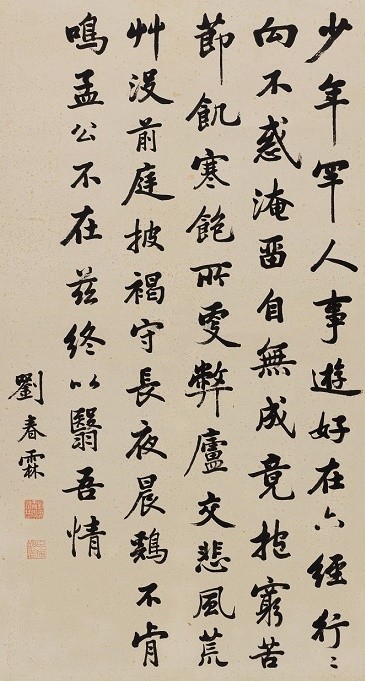 少年罕人事遊好在六經行〻
向不惑淹畱自無成竟抱窮苦
節飢寒飽所更弊廬交悲風荒
艸没前庭披褐守長夜晨鷄不肯
鳴孟公不在茲終以翳吾情
劉春霖